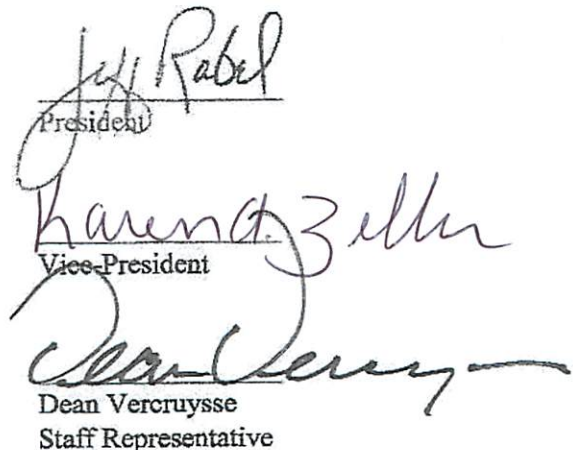 Jeff Rabel
President
Karen A. Zeller
Vice-President
Dean Vercruysse
Dean Vercruysse
Staff Representative